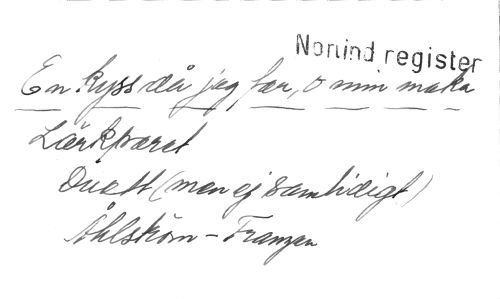 Norlind register
En kyss då jag far, o min maka
Lärkparet
Duett (men ej samtidigt)
Åhlström - Franzen